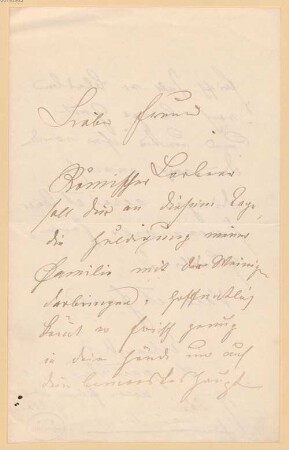 Lieber Freund
Römischer Lorbeer
soll Dir an diesem Tage,
die Huldigung meiner
Familie mit der Meinigen
darbringen. Hoffentlich
frisch genug
in Deine Hände und auf
Dein Haupt